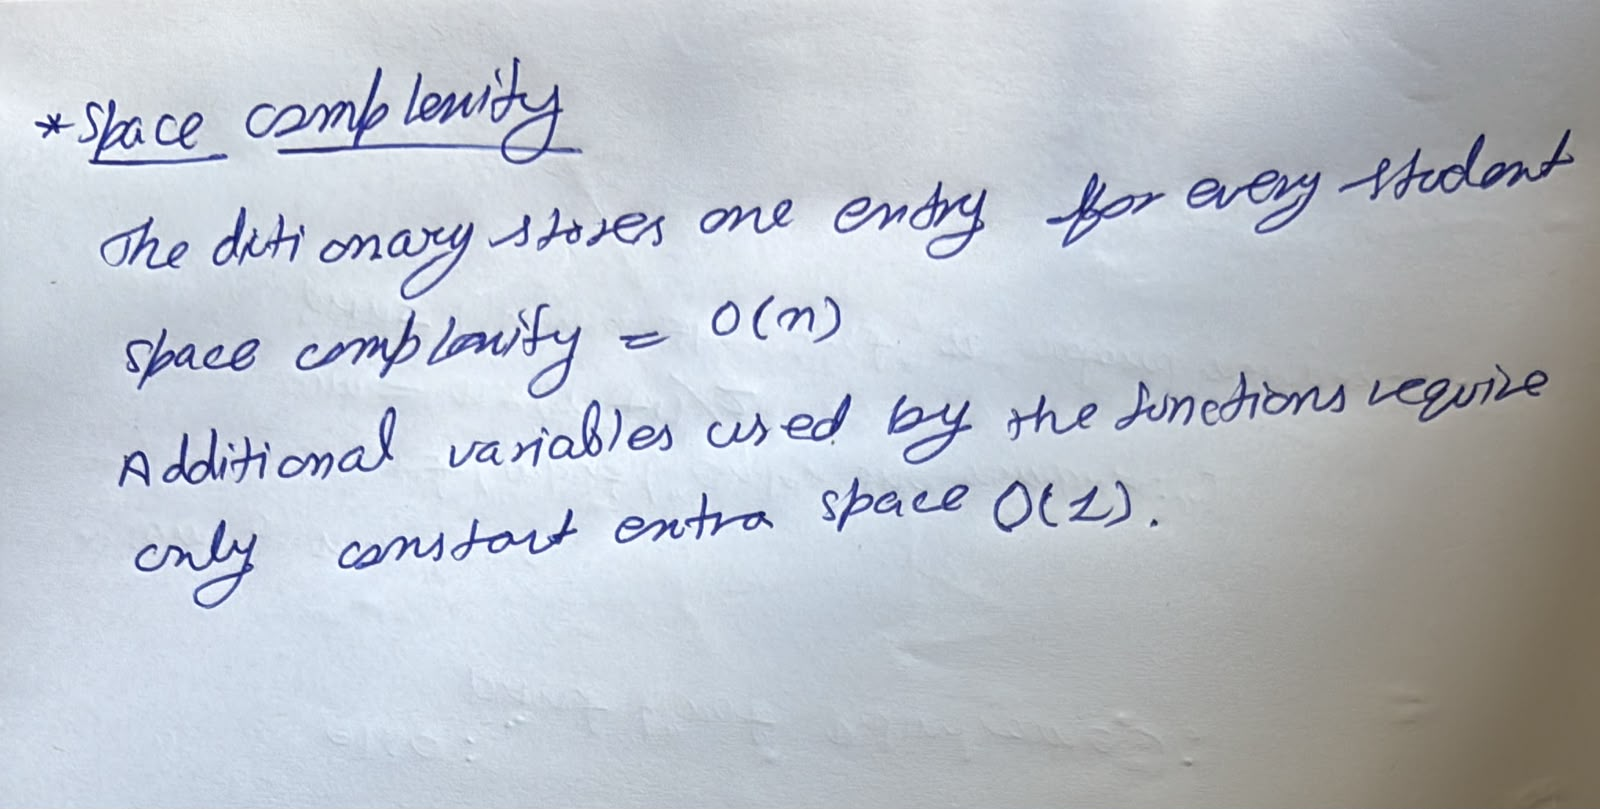 * Space complexity
The ditionary stores one entry for every student
space complexity = O(n)
Additional variables used by the functions require
only constant extra space O(1).